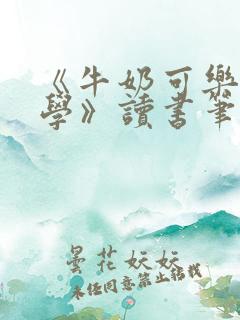 《牛奶可樂
學》讀書筆
曇花妖妖
未经同意禁止转载